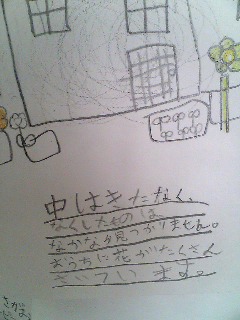 中はきたなく、
なくしたものは
なかなか見つかりません。
おうちに花がたくさん
さいてい ます。